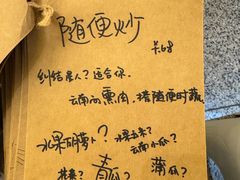 随便炒
¥68
纠结星人？适合你.
云南的熏肉，搭随便时蔬
水果胡萝卜？水果玉米？
云南小瓜？
青瓜？
蒲瓜？